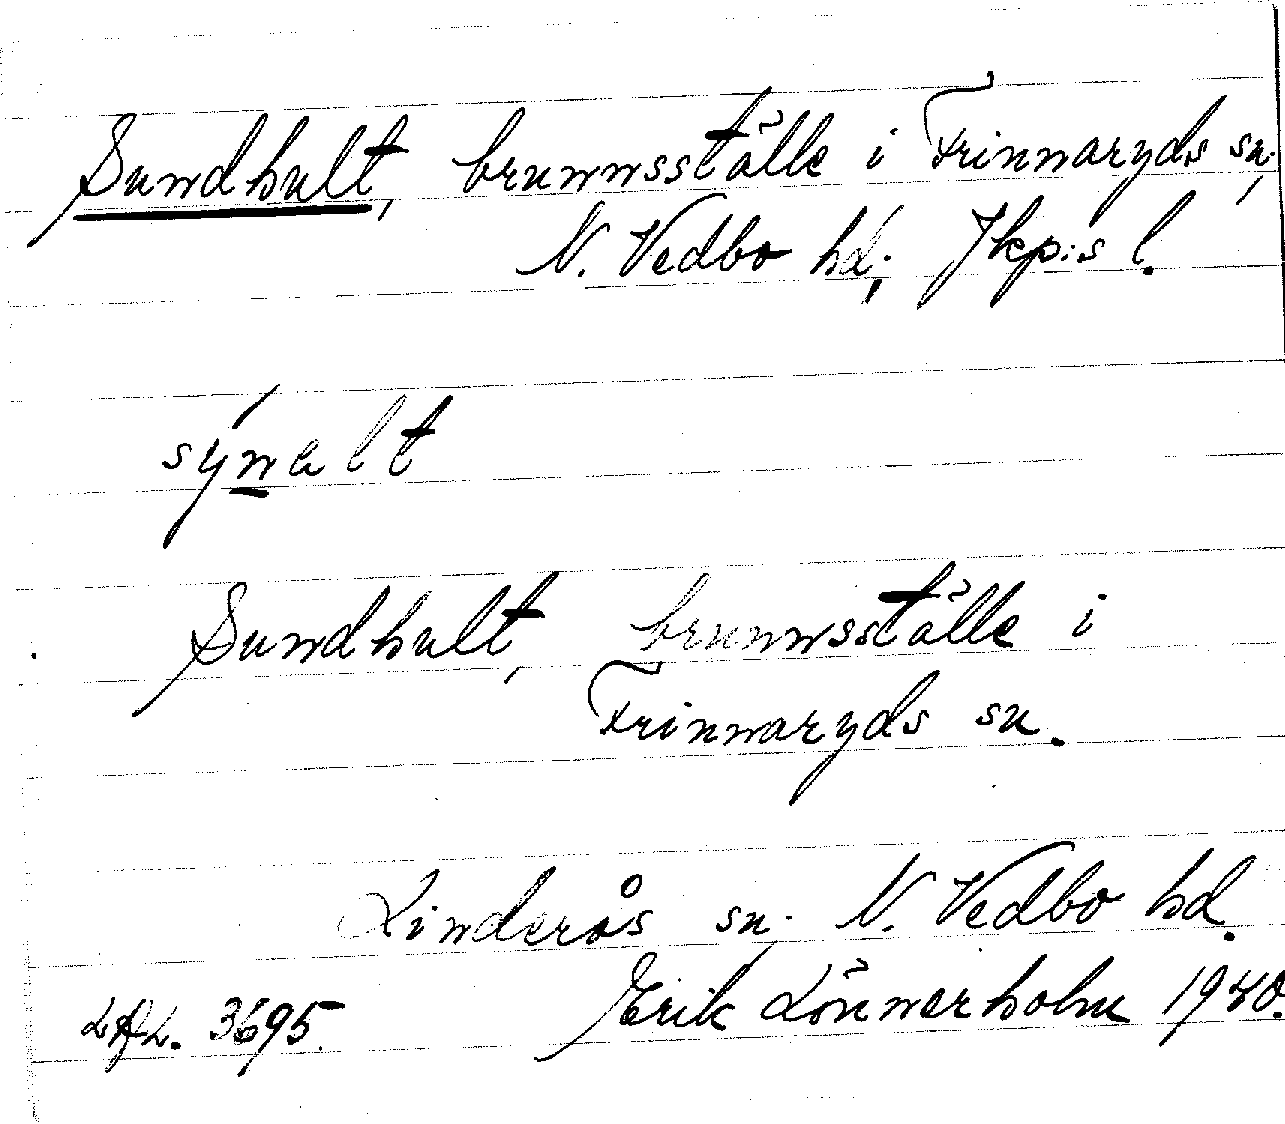 Sundhult, brunnsställe i Frinnaryds sn.,
N. Vedbo hd., Jkp:s l.
sýnalt
Sundhult, brunnsställe i
Frinnaryds sn.
Linderås sn. N. Vedbo hd.
Erik Lönnerholm 1940.
3695.